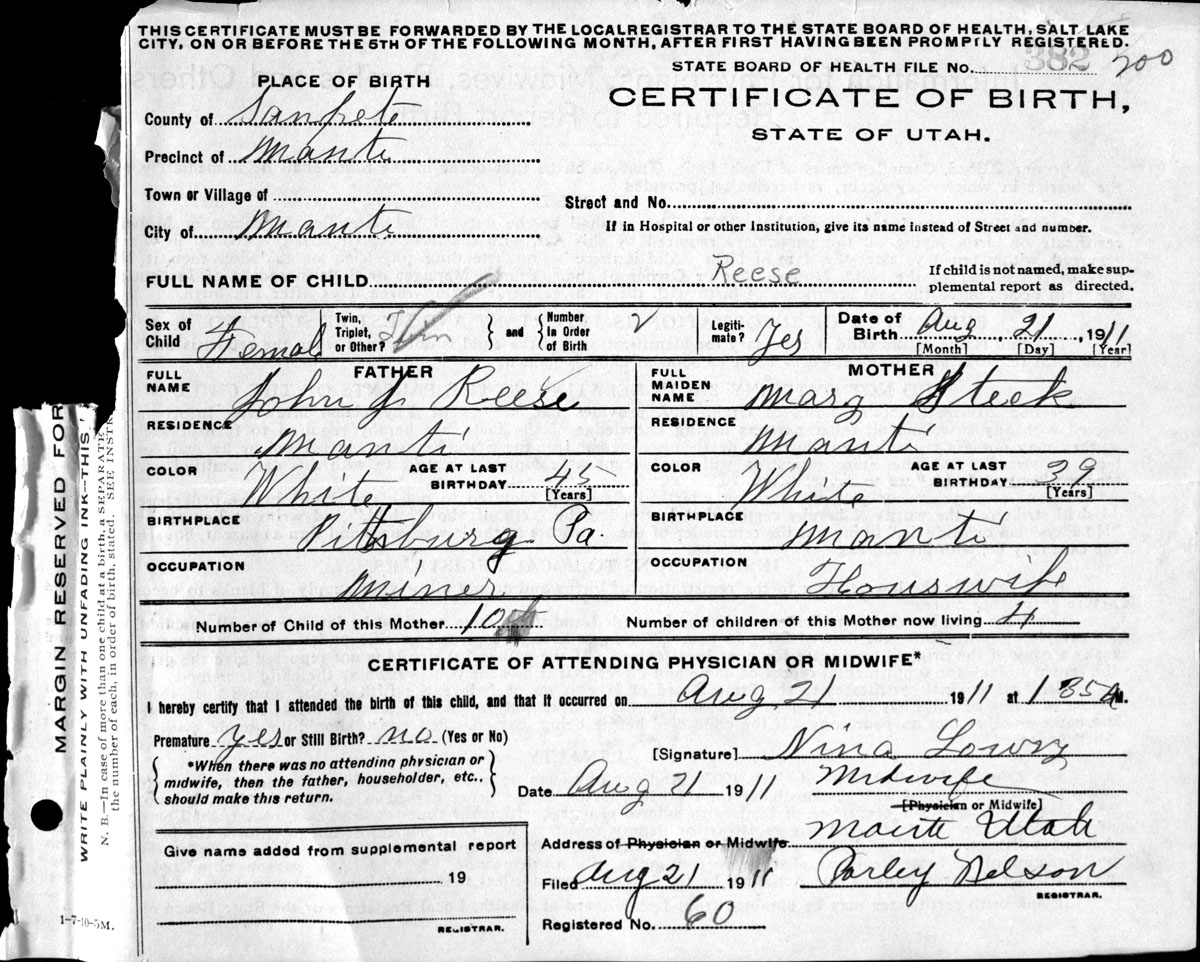 THIS CERTIFICATE MUST BE FORWARDED BY THE LOCAL REGISTRAR TO THE STATE BOARD OF HEALTH, SALT LAKE
CITY, ON OR BEFORE THE 5TH OF THE FOLLOWING MONTH, AFTER FIRST HAVING BEEN PROMPTLY REGISTERED.
STATE BOARD OF HEALTH FILE No. 382 200
PLACE OF BIRTH
CERTIFICATE OF BIRTH,
STATE OF UTAH.
County of Sanpete
Precinct of Manti
Town or Village of
Street and No.
City of Manti
If in Hospital or other Institution, give its name instead of Street and number.
FULL NAME OF CHILD Reese
If child is not named, make sup-
plemental report as directed.
Sex of Child Female
Twin, Triplet, or Other? Twin and Number In Order of Birth 2
Legiti-mate? Yes
Date of Birth Aug 21, 1911
[Month] [Day] [Year]
FATHER
FULL NAME John J Reese
RESIDENCE Manti
COLOR White AGE AT LAST BIRTHDAY 45 [Years]
BIRTHPLACE Pittsburg Pa.
OCCUPATION Miner
MOTHER
FULL MAIDEN NAME Marg Steck
RESIDENCE Manti
COLOR White AGE AT LAST BIRTHDAY 39 [Years]
BIRTHPLACE Manti
OCCUPATION Houswife
Number of Child of this Mother 10th Number of children of this Mother now living 4
CERTIFICATE OF ATTENDING PHYSICIAN OR MIDWIFE*
I hereby certify that I attended the birth of this child, and that it occurred on Aug 21 1911 at 1 35 a M.
Premature yes or Still Birth? no (Yes or No)
[Signature] Nina Lowry
*When there was no attending physician or
midwife, then the father, householder, etc.,
should make this return.
Date Aug 21 1911 Midwife
[Physician or Midwife]
Address of Physician or Midwife Manti Utah
Give name added from supplemental report
19
REGISTRAR.
Filed Aug 21 1911 Parley Nelson
REGISTRAR.
Registered No. 60
1-7-10-5M.
MARGIN RESERVED FOR
WRITE PLAINLY WITH UNFADING INK—THIS
N. B.—In case of more than one child at a birth, a SEPARATE
the number of each, in order of birth, stated. SEE INSTR